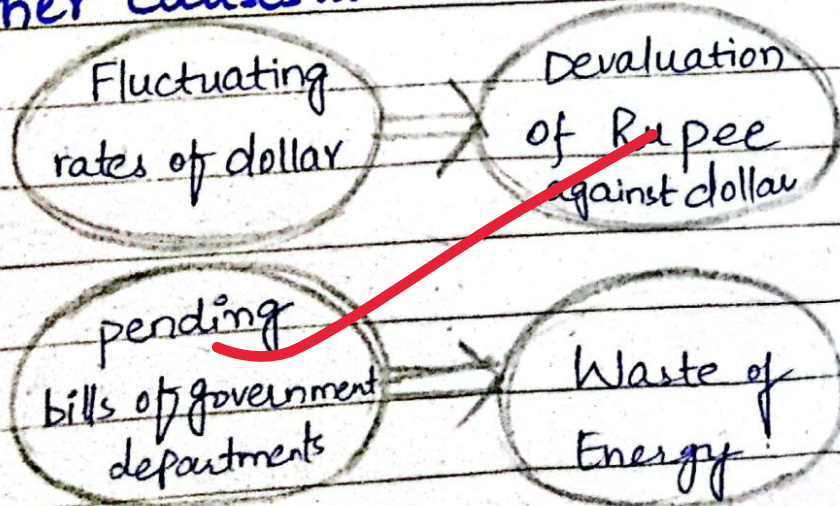 Fluctuating
rates of dollar
Devaluation
of Rupee
against dollar
pending
bills of government
departments
Waste of
Energy